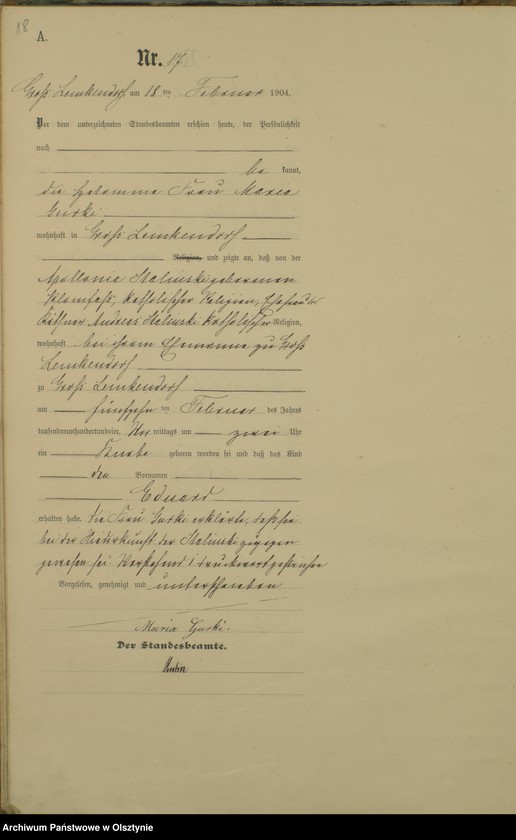 18
A.
Nr. 17
Groß Lemkendorf am 18 ten Februar 1904.
Vor dem unterzeichneten Standesbeamten erschien heute, der Persönlichkeit
nach
be kannt,
die Hebamme Frau Maria
Gurki
wohnhaft in Groß Lemkendorf
Religion, und zeigte an, daß von der
Apollonia Stalinski geborenen
katholischer Religion, Ehefrau des
Käthner Andreas Stalinski katholischer Religion,
wohnhaft bei ihrem Ehemanne zu Groß
Lemkendorf
zu Groß Lemkendorf
am fünfzehn ten Februar des Jahres
tausendneunhundertundvier, Vor mittags um zwei Uhr
ein Knabe geboren worden sei und daß das Kind
den Vornamen
Eduard
erhalten habe. Die Frau Gurki erklärte, daß sie
bei der Niederkunft der Stalinski zugegen
gewesen sei. Vorstehend 1 Druckwort gestrichen
Vorgelesen, genehmigt und unterschrieben
Maria Gurki.
Der Standesbeamte.
Archiwum Państwowe w Olsztynie